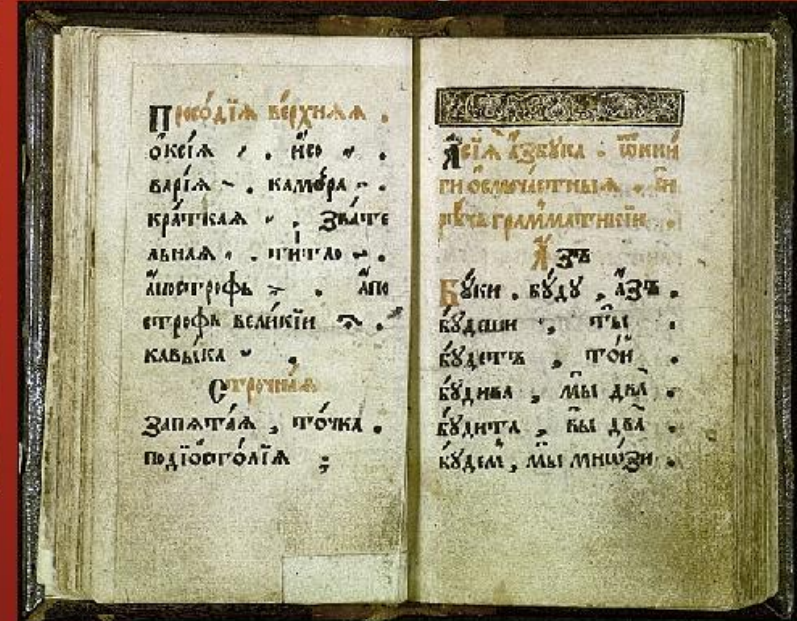 Просо́дїѧ ве́рхнѧѧ .
ѻ҆ксі́ѧ ´ . и҆со ҆ .
варі́ѧ ` . камо́ра ̑ .
кра́ткаѧ ̆ . зва́те
льнаѧ . ти́тло ҃ .
а҆по́строфь . а҆по
строфь вели́кїи .
кавы́ка .
Стро́чнаѧ
запѧта́ѧ , то́чка .
подїѡсто́лїѧ ;
А҆сїѧ̀ а҆́збꙋка . ѿкни́
ги ѻсмоча́стныѧ . си
рѣ́чь грамма́тикїи .
А҆́зъ
Бꙋ́ки . бꙋ́дꙋ , а҆́зъ .
бꙋ́деши , ты̀ .
бꙋ́детъ , то́й .
бꙋ́дива , мы̀ два̀ .
бꙋ́дита , вы̀ два̀ .
бꙋ́дем , мы̀ мнѡ́зи .